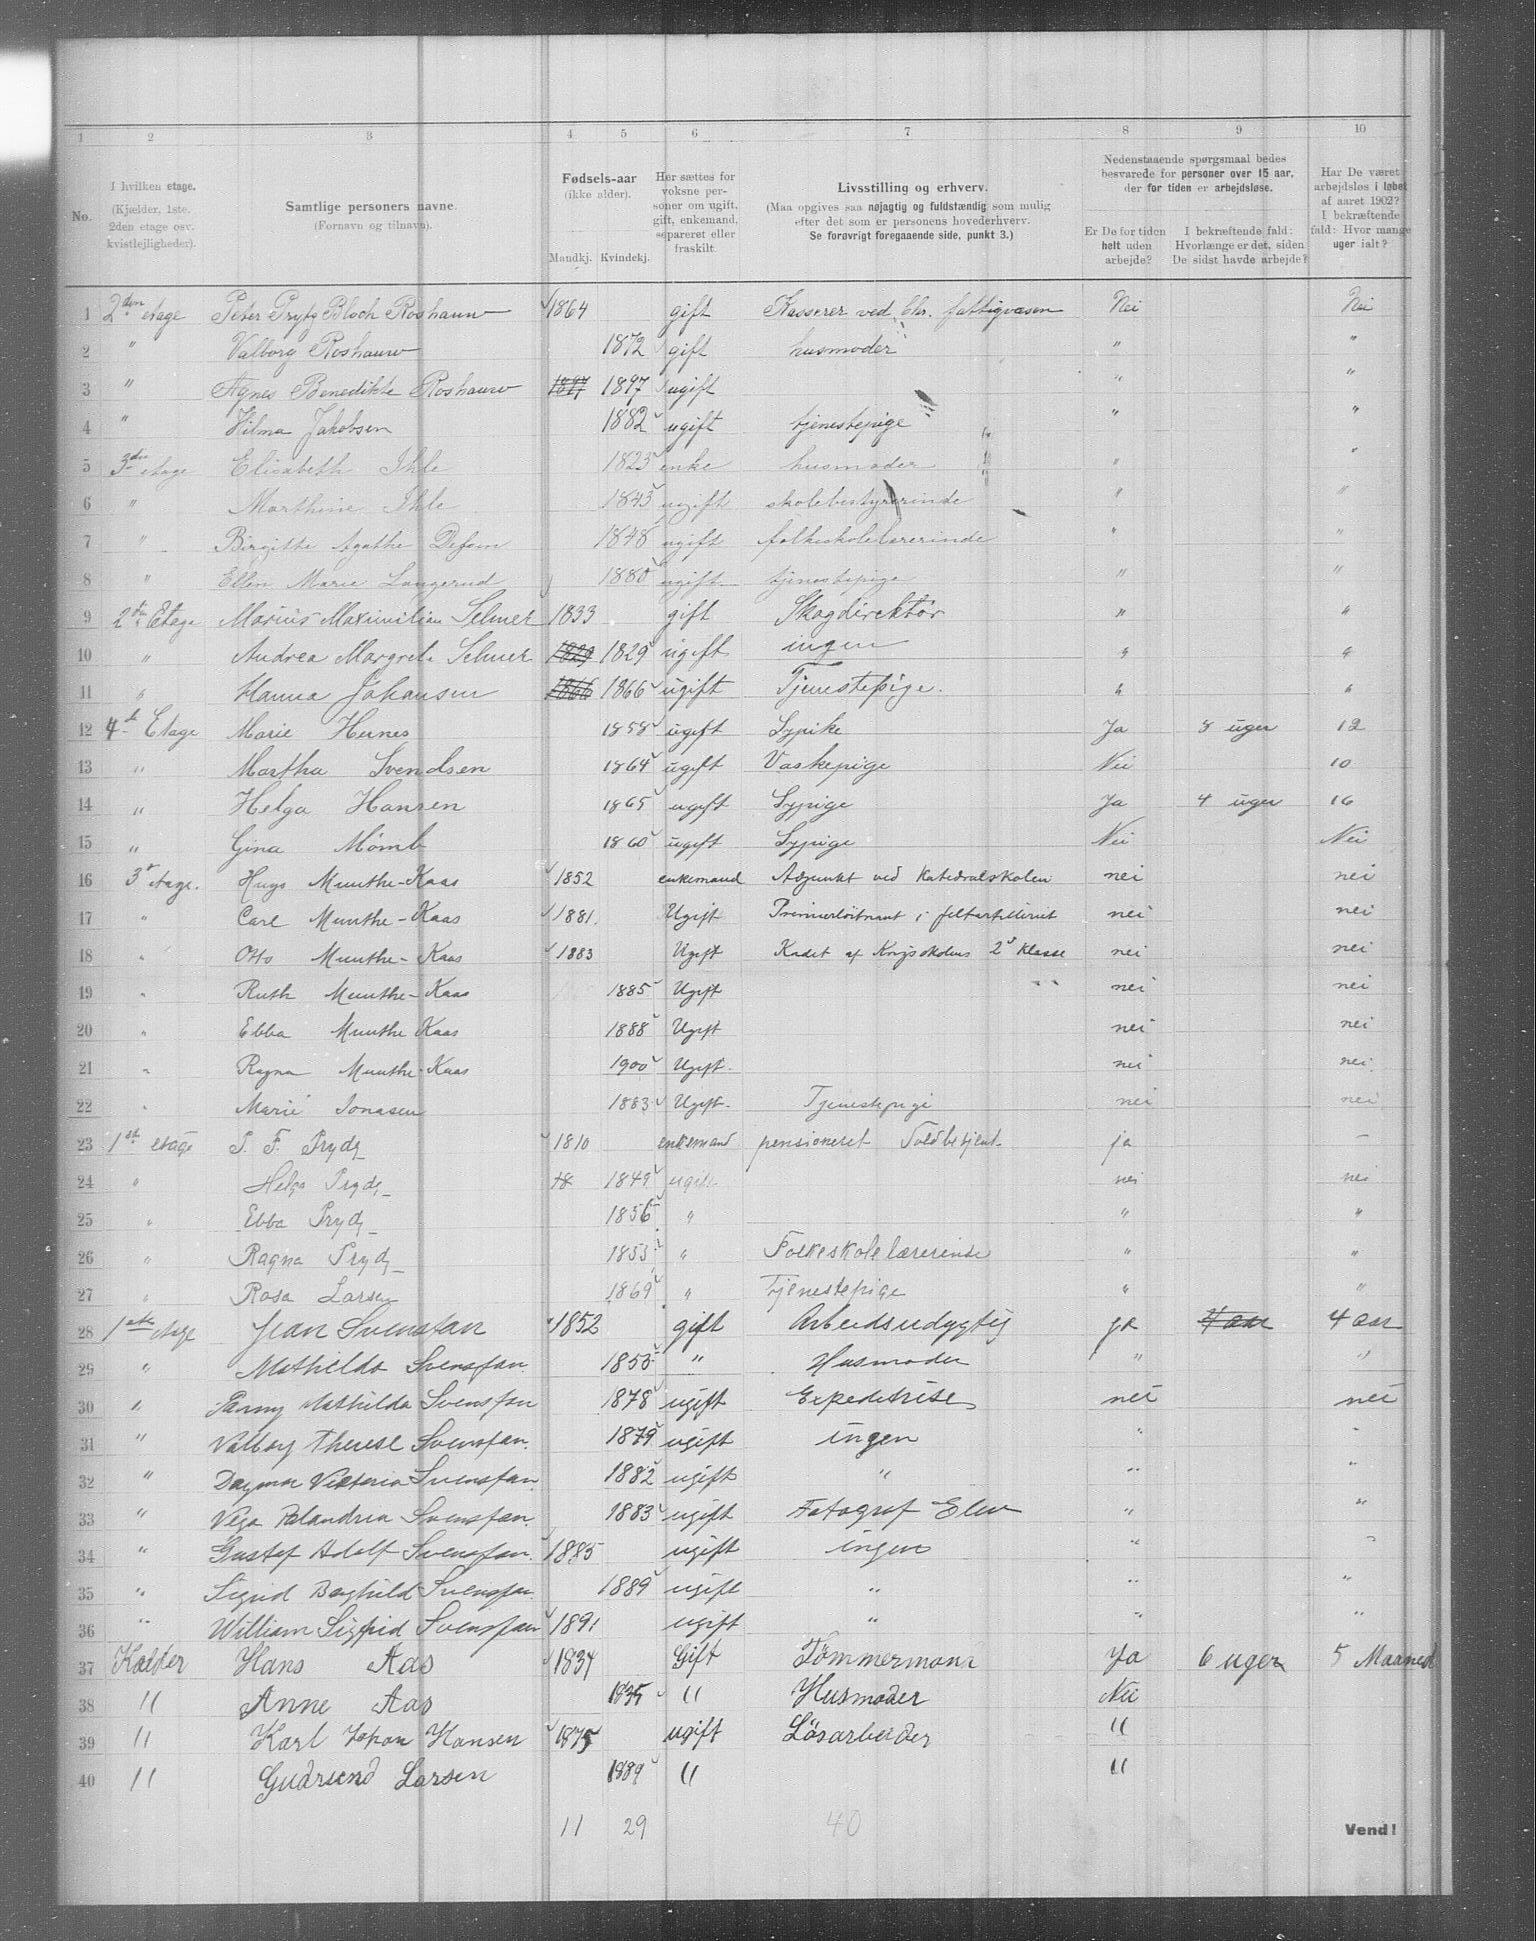 1 2 3 4 5 6 7 8 9 10
No.
I hvilken etage.
(Kjælder, 1ste,
2den etage osv.
kvistlejligheder).
Samtlige personers navne.
(Fornavn og tilnavn).
Fødsels-aar
(ikke alder).
Mandkj. Kvindekj.
Her sættes for
voksne per-
soner om ugift,
gift, enkemand,
separeret eller
fraskilt.
Livsstilling og erhverv.
(Maa opgives saa nøjagtig og fuldstændig som mulig
efter det som er personens hovederhverv.
Se forøvrigt foregaaende side, punkt 3.)
Nedenstaaende spørgsmaal bedes
besvarede for personer over 15 aar,
der for tiden er arbejdsløse.
Er De for tiden
helt uden
arbejde?
I bekræftende fald:
Hvorlænge er det, siden
De sidst havde arbejde?
Har De været
arbejdsløs i løbet
af aaret 1902?
I bekræftende
fald: Hvor mange
uger ialt?
1 2den etage Peter Prytz Bloch Roshauw 1864 gift Kasserer ved Chr. fattigvæsen Nei Nei
2 " Valborg Roshauw 1872 gift husmoder " "
3 " Agnes Benedikte Roshauw 1897 1897 ugift " "
4 " Hilma Jakobsen 1882 ugift tjenestepige " "
5 3die etage Elisabeth Ihle 1823 enke husmoder " "
6 " Marthine Ihle 1843 ugift skolebestyrerinde " "
7 " Birgitte Agathe 1848 ugift folkeskolelærerinde " "
8 " Ellen Marie Langerud 1880 ugift tjenestepige " "
9 2den Etage Marius Maximilian Selmer 1833 gift Skogdirektør " "
10 " Andrea Margrete Selmer 1829 1829 ugift ingen " "
11 " Hanna Johansen 1866 1866 ugift Tjenestepige. " "
12 4de Etage Marie Hernes 1858 ugift Sypike Ja 8 uger 12
13 " Martha Svendsen 1864 ugift Vaskepige Nei 10
14 " Helga Hansen 1865 ugift Sypige Ja 4 uger 16
15 " Gina Mømb 1860 ugift Sypige Nei Nei
16 3 etage. Hugo Munthe-Kaas 1852 enkemand Adjunkt ved Katedralskolen nei nei
17 " Carl Munthe-Kaas 1881. Ugift Premierløitnant i feltartilleriet nei nei
18 " Otto Munthe-Kaas 1883 Ugift Kadet af Krigsskolens 2d Klasse nei nei
19 " Ruth Munthe-Kaas 1885 Ugift nei nei
20 " Ebba Munthe Kaas 1888 Ugift nei nei
21 " Ragna Munthe-Kaas 1900 Ugift. nei nei
22 " Marie Jonasen 1883 Ugift. Tjenestepige nei nei
23 1st etage P. F. Prydz 1810 enkemand pensioneret Toldbetjent ja –
24 " Helga Prydz 18 1849 ugift nei nei
25 " Ebba Prydz 1856 " " "
26 " Ragna Prydz 1853 " Folkeskolelærerinde " "
27 " Rosa Larsen 1869 " Tjenestepige " "
28 1ste etage Jean Svensson 1852 gift Arbeidsudygtig ja 4 aar 4 aar
29 " Mathilda Svensson 1855 " Husmoder " "
30 " Fanny Mathilda Svensson 1878 ugift Expeditrise nei nei
31 " Valborg Therese Svensson. 1879 ugift ingen " "
32 " Dagmar Viktoria Svensson. 1882 ugift " " "
33 " Vega Svensson. 1883 ugift Fotograf Elev " "
34 " Gustaf Adolf Svensson. 1885 ugift ingen " "
35 " Sigrid Borghild Svensson. 1889 ugift " " "
36 " William Sigfrid Svensson 1891 ugift " " "
37 Kælder Hans Aas 1834 Gift Tømmermann Ja 6 uger 5 Maaned
38 " Anne Aas 1835 " Husmoder Nei
39 " Karl Johan Hansen 1875 ugift Løsarbeider "
40 " Gudrund Larsen 1889 " "
11 29 40
Vend!